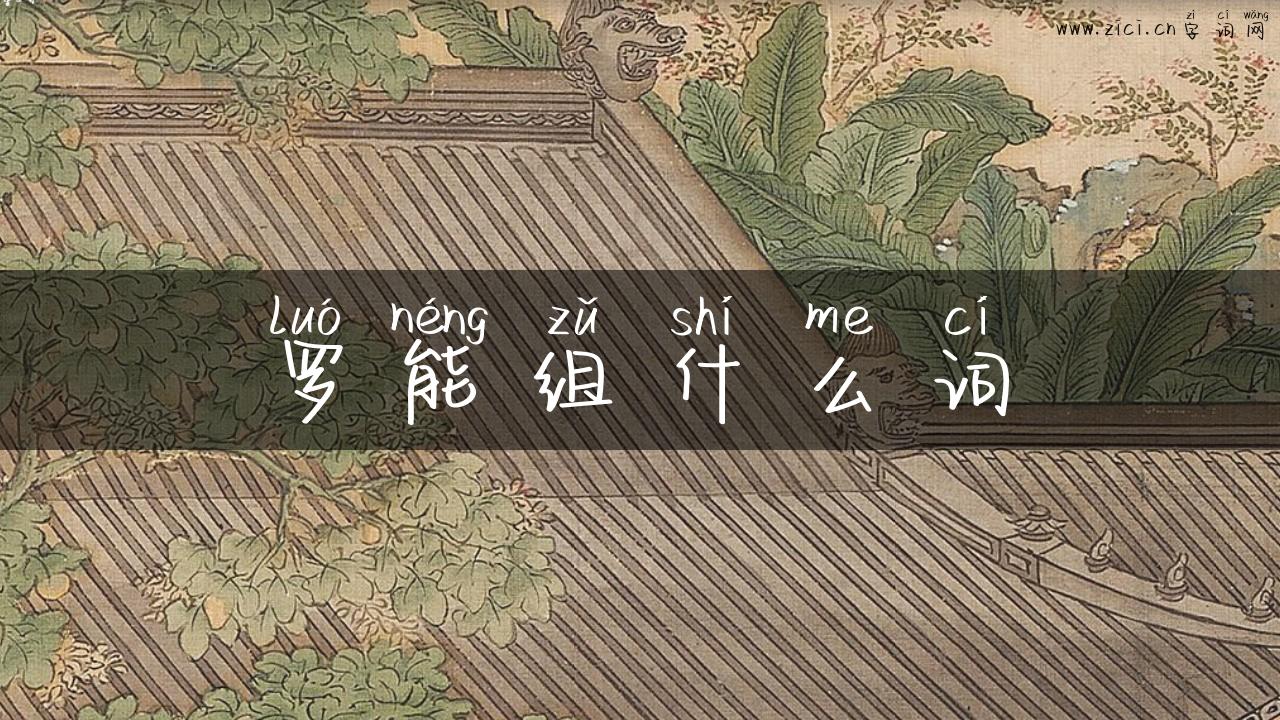 zì cí wǎng
www.zici.cn 字词网
luó néng zǔ shí me cí
罗能组什么词